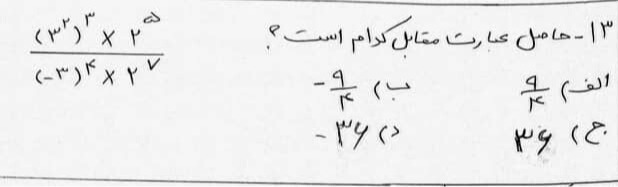 ۱۳- حاصل عبارت مقابل کدام است؟ (۳^۲)^۳ × ۲^۵ / (-۳)^۴ × ۲^۷
الف) ۹/۴ ب) -۹/۴
ج) ۳۶ د) -۳۶